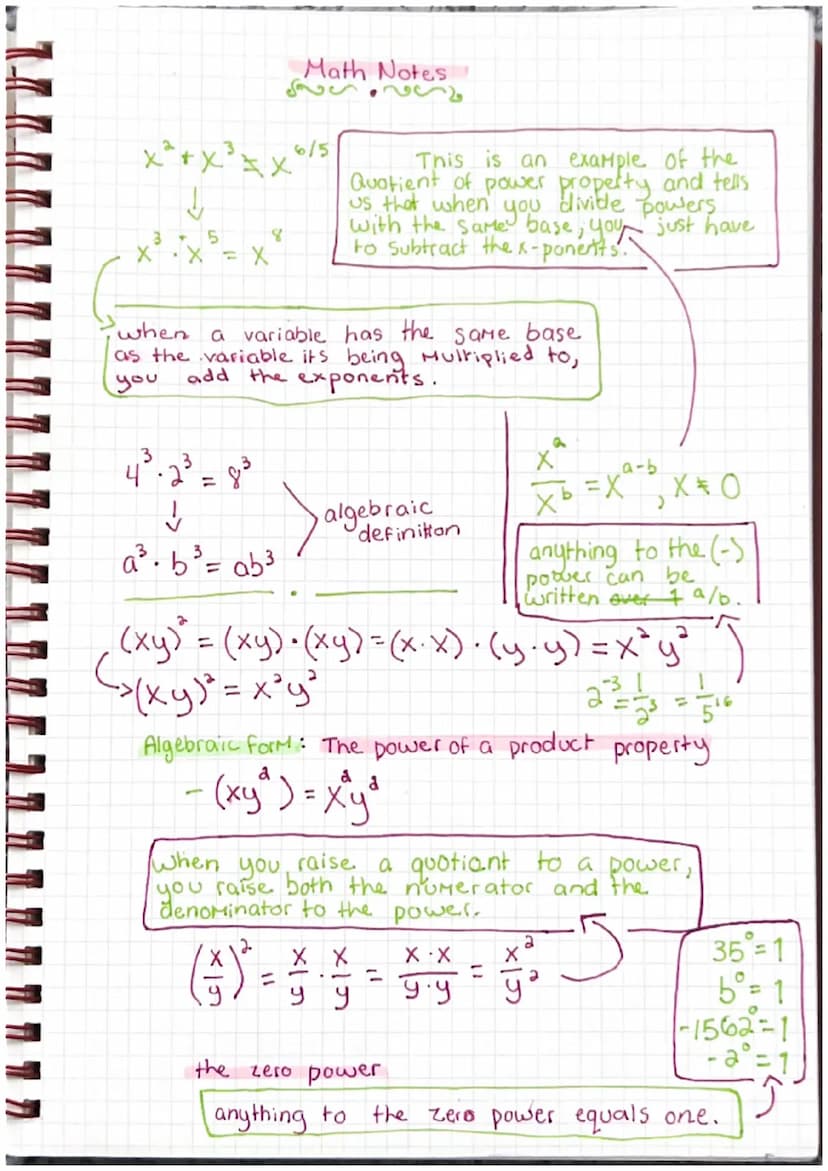 Math Notes
x² + x³ ≠ x^6/5
↓
x³ · x⁵ = x⁸
This is an example of the
Quotient of power property and tells
us that when you divide powers
with the same base, you just have
to subtract the x-ponents.
when a variable has the same base
as the variable its being multiplied to,
you add the exponents.
4³ · 2³ = 8³
↓
a³ · b³ = ab³
algebraic
definition
x^a/x^b = x^a-b, x ≠ 0
anything to the (-)
power can be
written ~~over 1~~ a/b.
(xy)² = (xy) · (xy) = (x · x) · (y · y) = x² y²
→ (xy)² = x² y²
2⁻³ = 1/2³ = 1/5¹⁶
Algebraic form: The power of a product property
- (xy^a) = x^a y^a
when you raise a quotiant to a power,
you raise both the numerator and the
denominator to the power.
(x/y)² = x/y · x/y = x · x/y · y = x²/y²
35⁰ = 1
b⁰ = 1
-1562⁰ = 1
-2⁰ = 1
the zero power
anything to the zero power equals one.